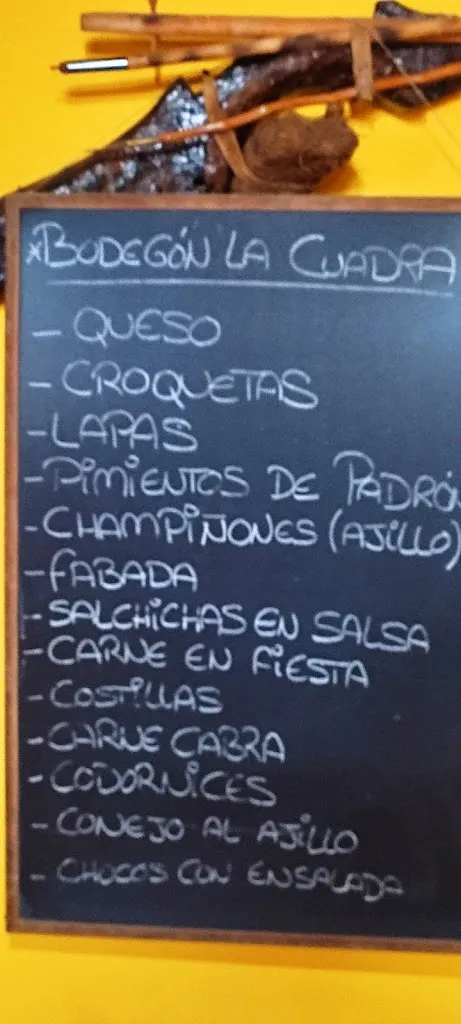 *BODEGÓN LA CUADRA
- QUESO
- CROQUETAS
- LAPAS
- PIMIENTOS DE PADRÓN
- CHAMPIÑONES (AJILLO)
- FABADA
- SALCHICHAS EN SALSA
- CARNE EN FIESTA
- COSTILLAS
- CARNE CABRA
- CODORNICES
- CONEJO AL AJILLO
- CHOCOS CON ENSALADA